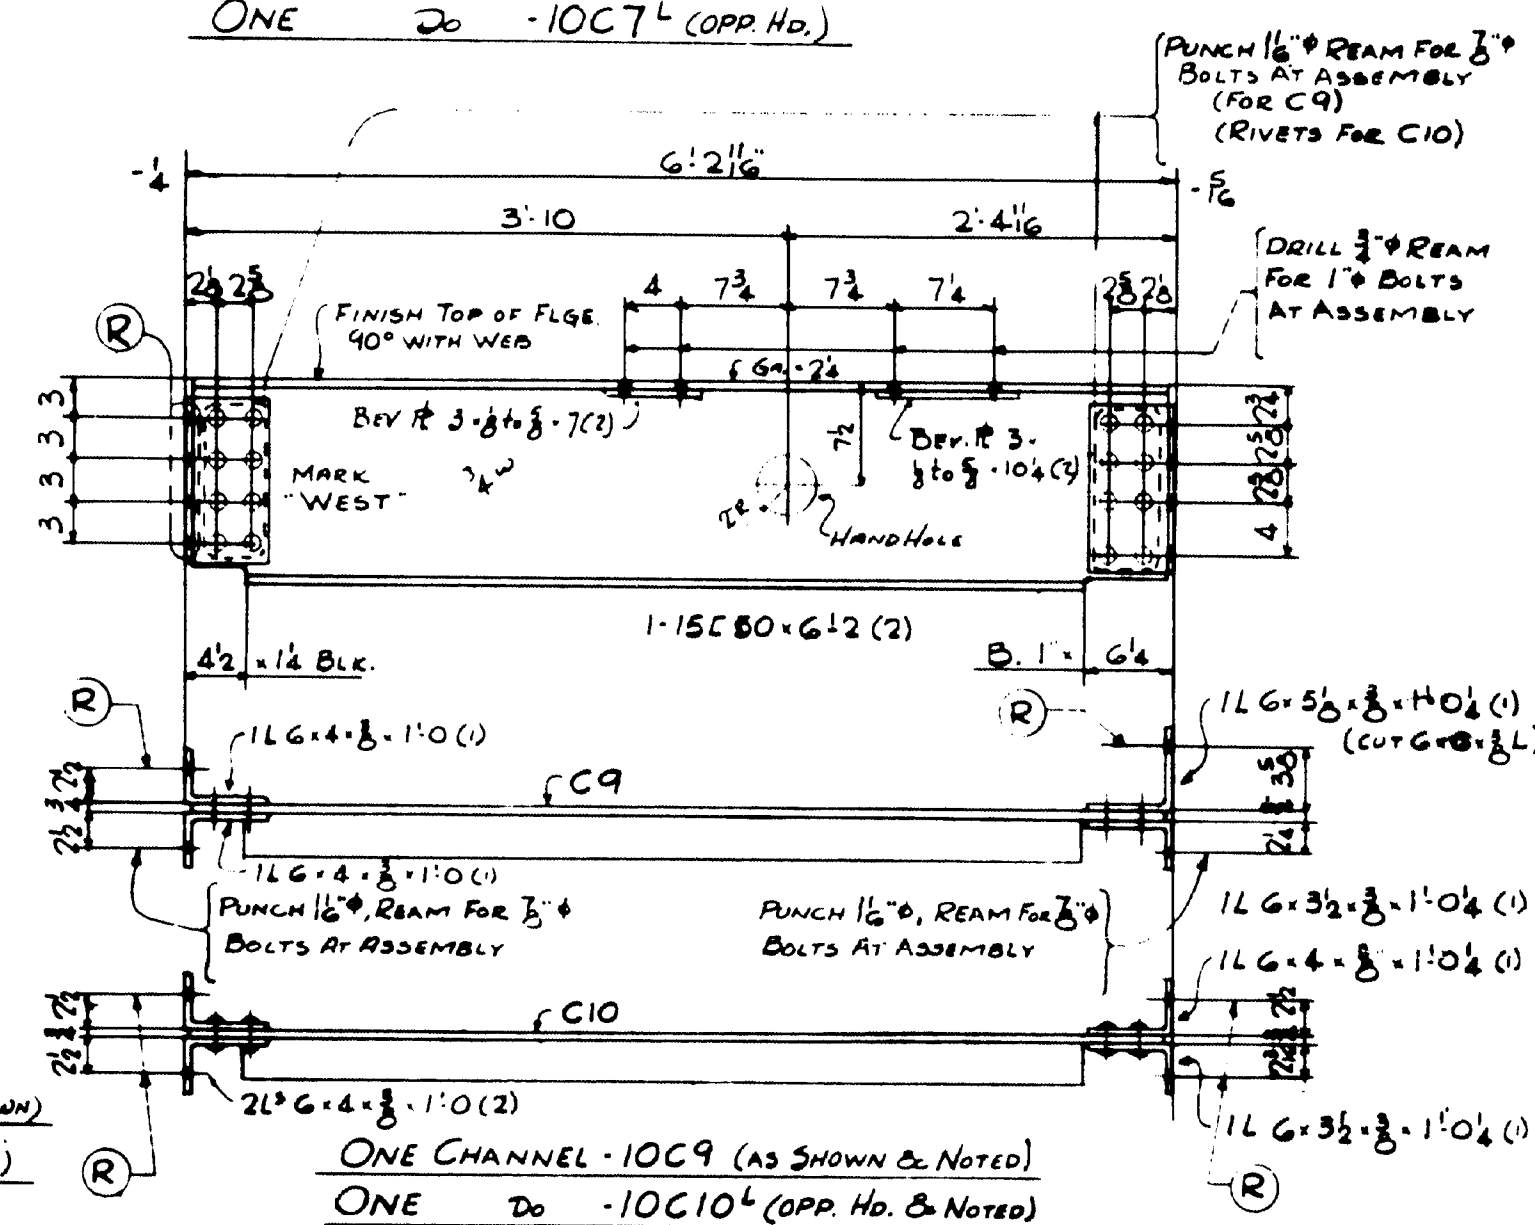 ONE Do -10C7ᴸ (OPP. HD.)
PUNCH 11/16"φ REAM FOR 7/8"φ
BOLTS AT ASSEMBLY
(FOR C9)
(RIVETS FOR C10)
-1/4
6'-2 11/16"
-5/16
3'-10
2'-4 11/16
DRILL 3/4"φ REAM
FOR 1"φ BOLTS
AT ASSEMBLY
2 1/8 2 5/8
4 7 3/4 7 3/4 7 1/4
2 5/8 2 1/8
R
FINISH TOP OF FLGE.
90° WITH WEB
GA. = 2 1/4
3
3
3
3
BEV ℄ 3 × 1/8 to 5/8 × 7 (2)
7 1/2
BEV. ℄ 3 ×
1/8 to 5/8 × 10 1/4 (2)
MARK
"WEST"
3/4 W
2R
HANDHOLE
2 3/4
2 5/8
4
1-15[50 × 6'-2 (2)
4 1/2 × 1 1/4 BLK.
B. 1" × 6 1/4
R
R
1L 6 × 4 × 3/8 × 1'-0 (1)
1L 6 × 5 1/8 × 3/8 × 1'-0 1/4 (1)
C9
2 1/2
3/4
2 1/2
3 5/8
2 1/4
1L 6 × 4 × 3/8 × 1'-0 (1)
PUNCH 11/16"φ, REAM FOR 7/8"φ
BOLTS AT ASSEMBLY
PUNCH 11/16"φ, REAM FOR 7/8"φ
BOLTS AT ASSEMBLY
1L 6 × 3 1/2 × 3/8 × 1'-0 1/4 (1)
1L 6 × 4 × 3/8 × 1'-0 1/4 (1)
C10
2 1/2
3/4
2 1/2
2 1/2
2L⁵ 6 × 4 × 3/8 × 1'-0 (2)
1L 6 × 3 1/2 × 3/8 × 1'-0 1/4 (1)
R
R
ONE CHANNEL - 10C9 (AS SHOWN & NOTED)
ONE Do -10C10ᴸ (OPP. HD. & NOTED)